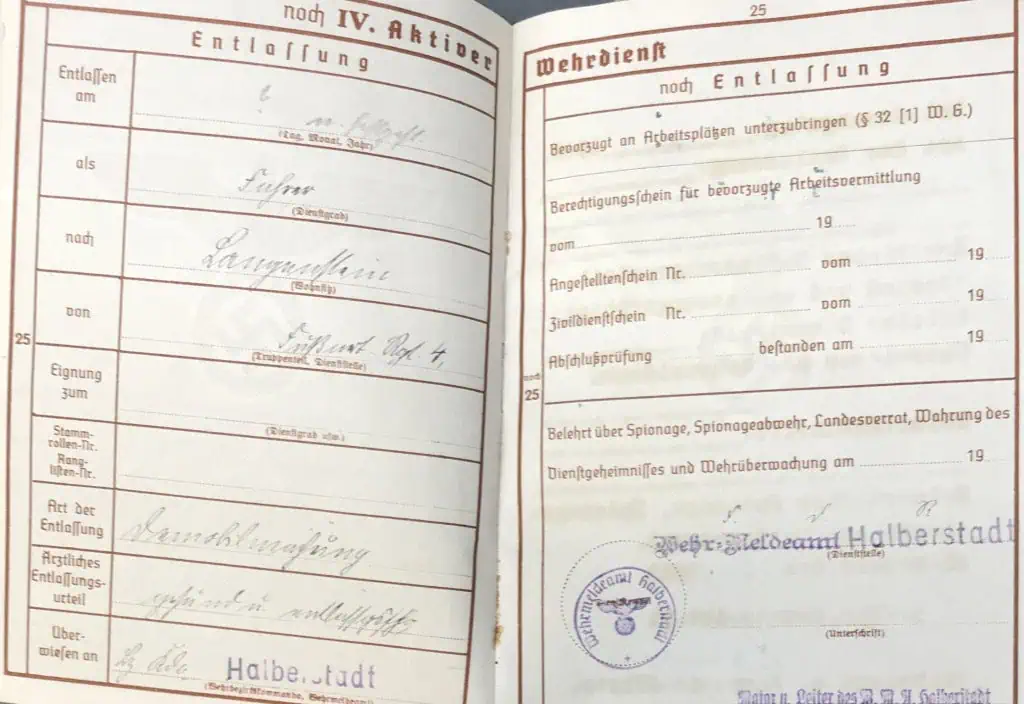 noch IV. Aktiver
Entlassung
Entlassen
am
(Tag, Monat, Jahr)
als
Führer
(Dienstgrad)
nach
Langenstein
(Wohnsitz)
von
Fußart. Rgt. 4,
(Truppenteil, Dienststelle)
25
Eignung
zum
(Dienstgrad usw.)
Stamm-
rollen-Nr.
Rang-
listen-Nr.
Art der
Entlassung
Demobilmachung
Ärztliches
Entlassungs-
urteil
gesund u.
Über-
wiesen an
Halberstadt
(Wehrbezirkskommando, Wehrmeldeamt)
25
Wehrdienst
noch Entlassung
Bevorzugt an Arbeitsplätzen unterzubringen (§ 32 [1] W. G.)
Berechtigungsschein für bevorzugte Arbeitsvermittlung
vom 19
Angestelltenschein Nr. vom 19
Zivildienstschein Nr. vom 19
Abschlußprüfung bestanden am 19
noch
25
Belehrt über Spionage, Spionageabwehr, Landesverrat, Wahrung des
Dienstgeheimnisses und Wehrüberwachung am 19
Wehr-Meldeamt Halberstadt
(Dienststelle)
Wehrmeldeamt Halberstadt
(Unterschrift)
Major u. Leiter des W. M. A. Halberstadt